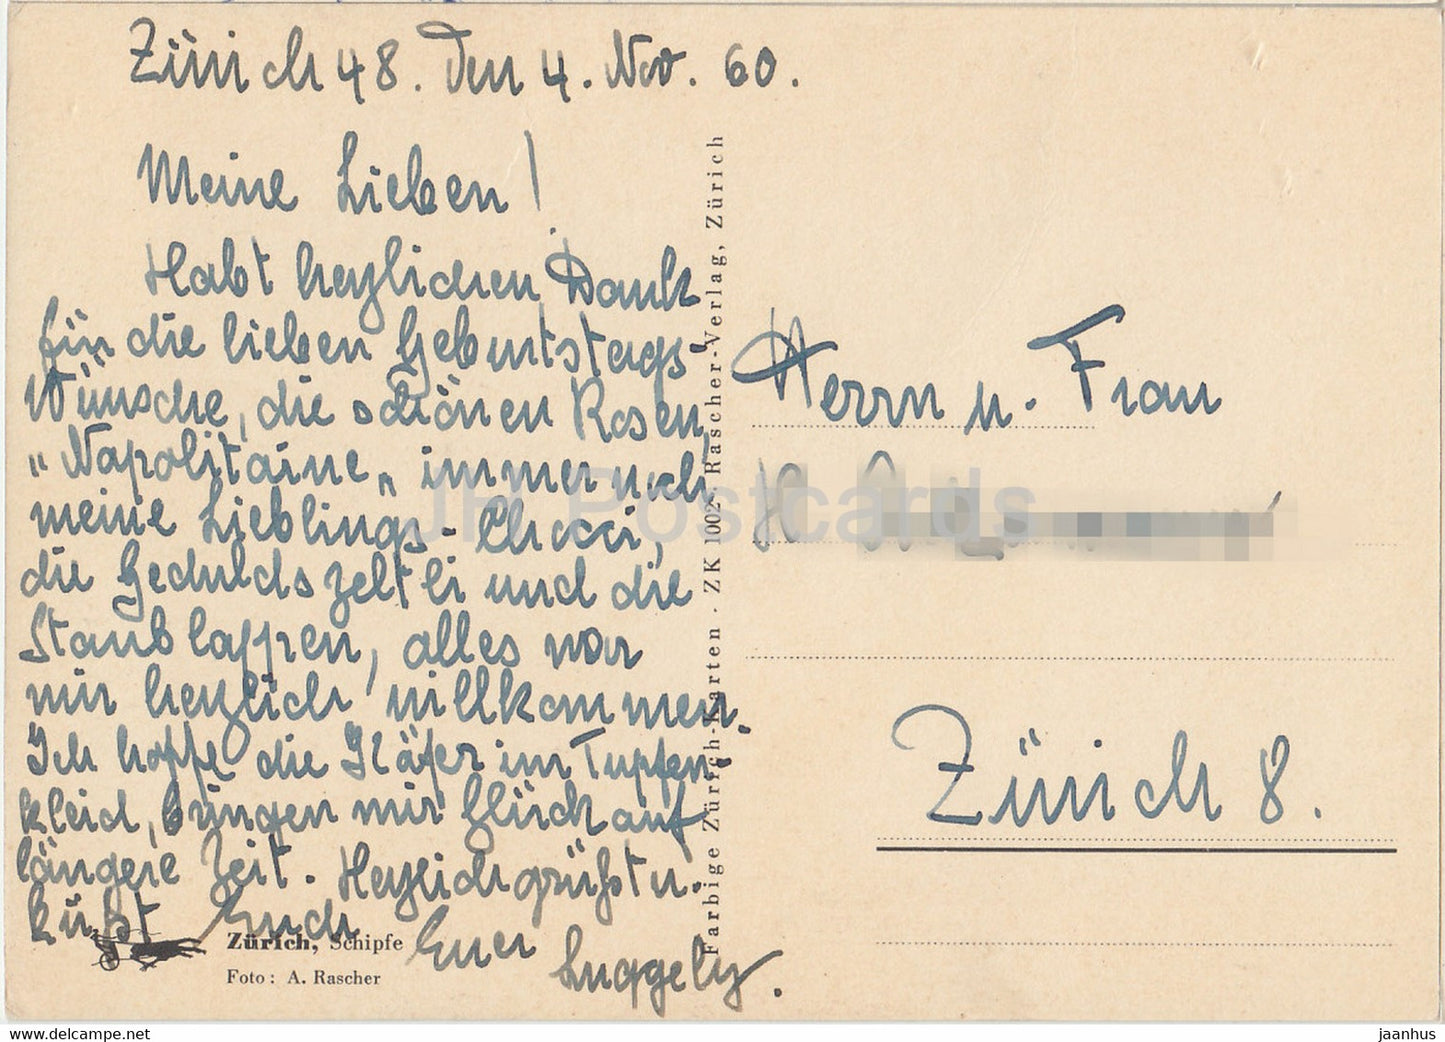 Zürich 48. Den 4. Nov. 60.
Meine Lieben!
Habt herzlichen Dank
für die lieben Geburtstags-
Wünsche, die schönen Rosen,
„Napolitaine„ immer noch
meine Lieblings-Chocci,
die Geduldszeltli und die
Staublappen, alles war
mir herzlich willkommen.
Ich hoffe die Käfer im Tupfen-
kleid, bringen mir Glück auf
längere Zeit. Herzlich grüsst u.
küsst Euch
Euer Luggely.
Zürich, Schipfe
Foto: A. Rascher
Farbige Zürich-Karten · ZK 1002 · Rascher-Verlag, Zürich
Herrn u. Frau
H.
Zürich 8.
JH Postcards
www.delcampe.net
jaanhus